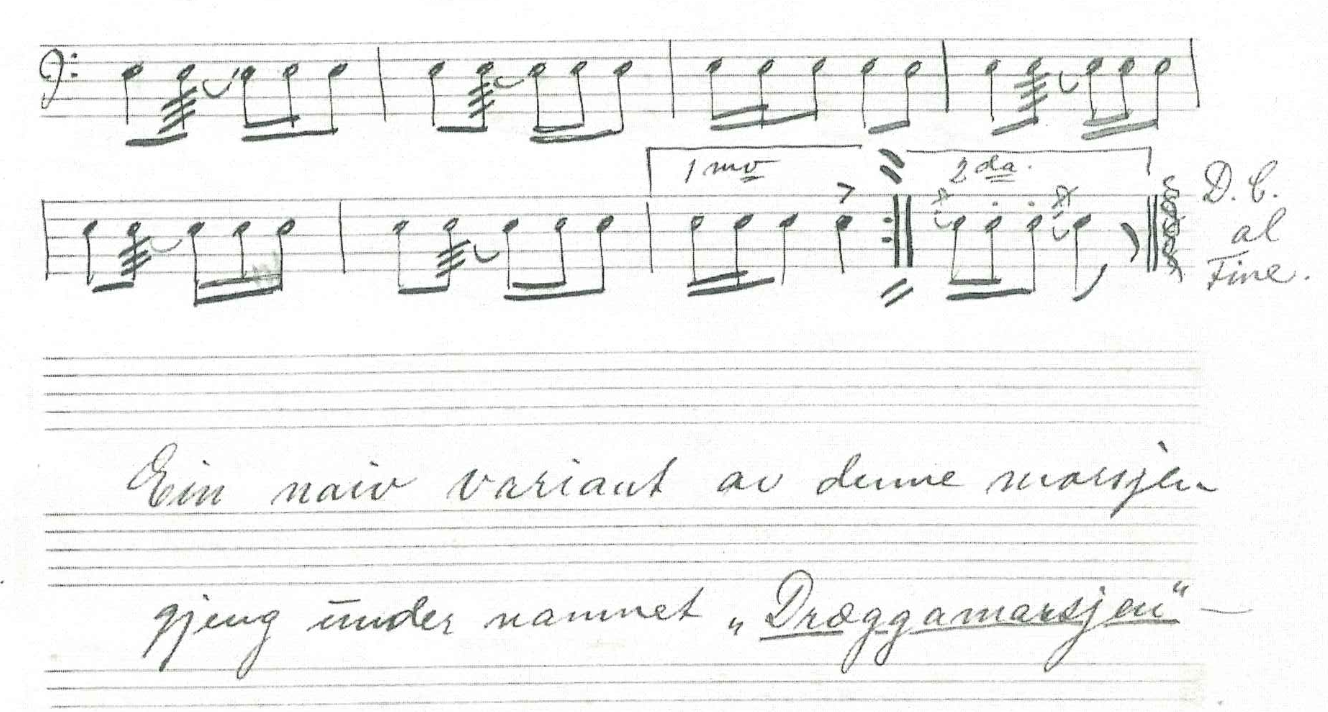 1 mo
2 da.
D. C.
al
Fine.
Ein naiv variant av denne marsjen
gjeng under namnet „Dræggamarsjen“ —